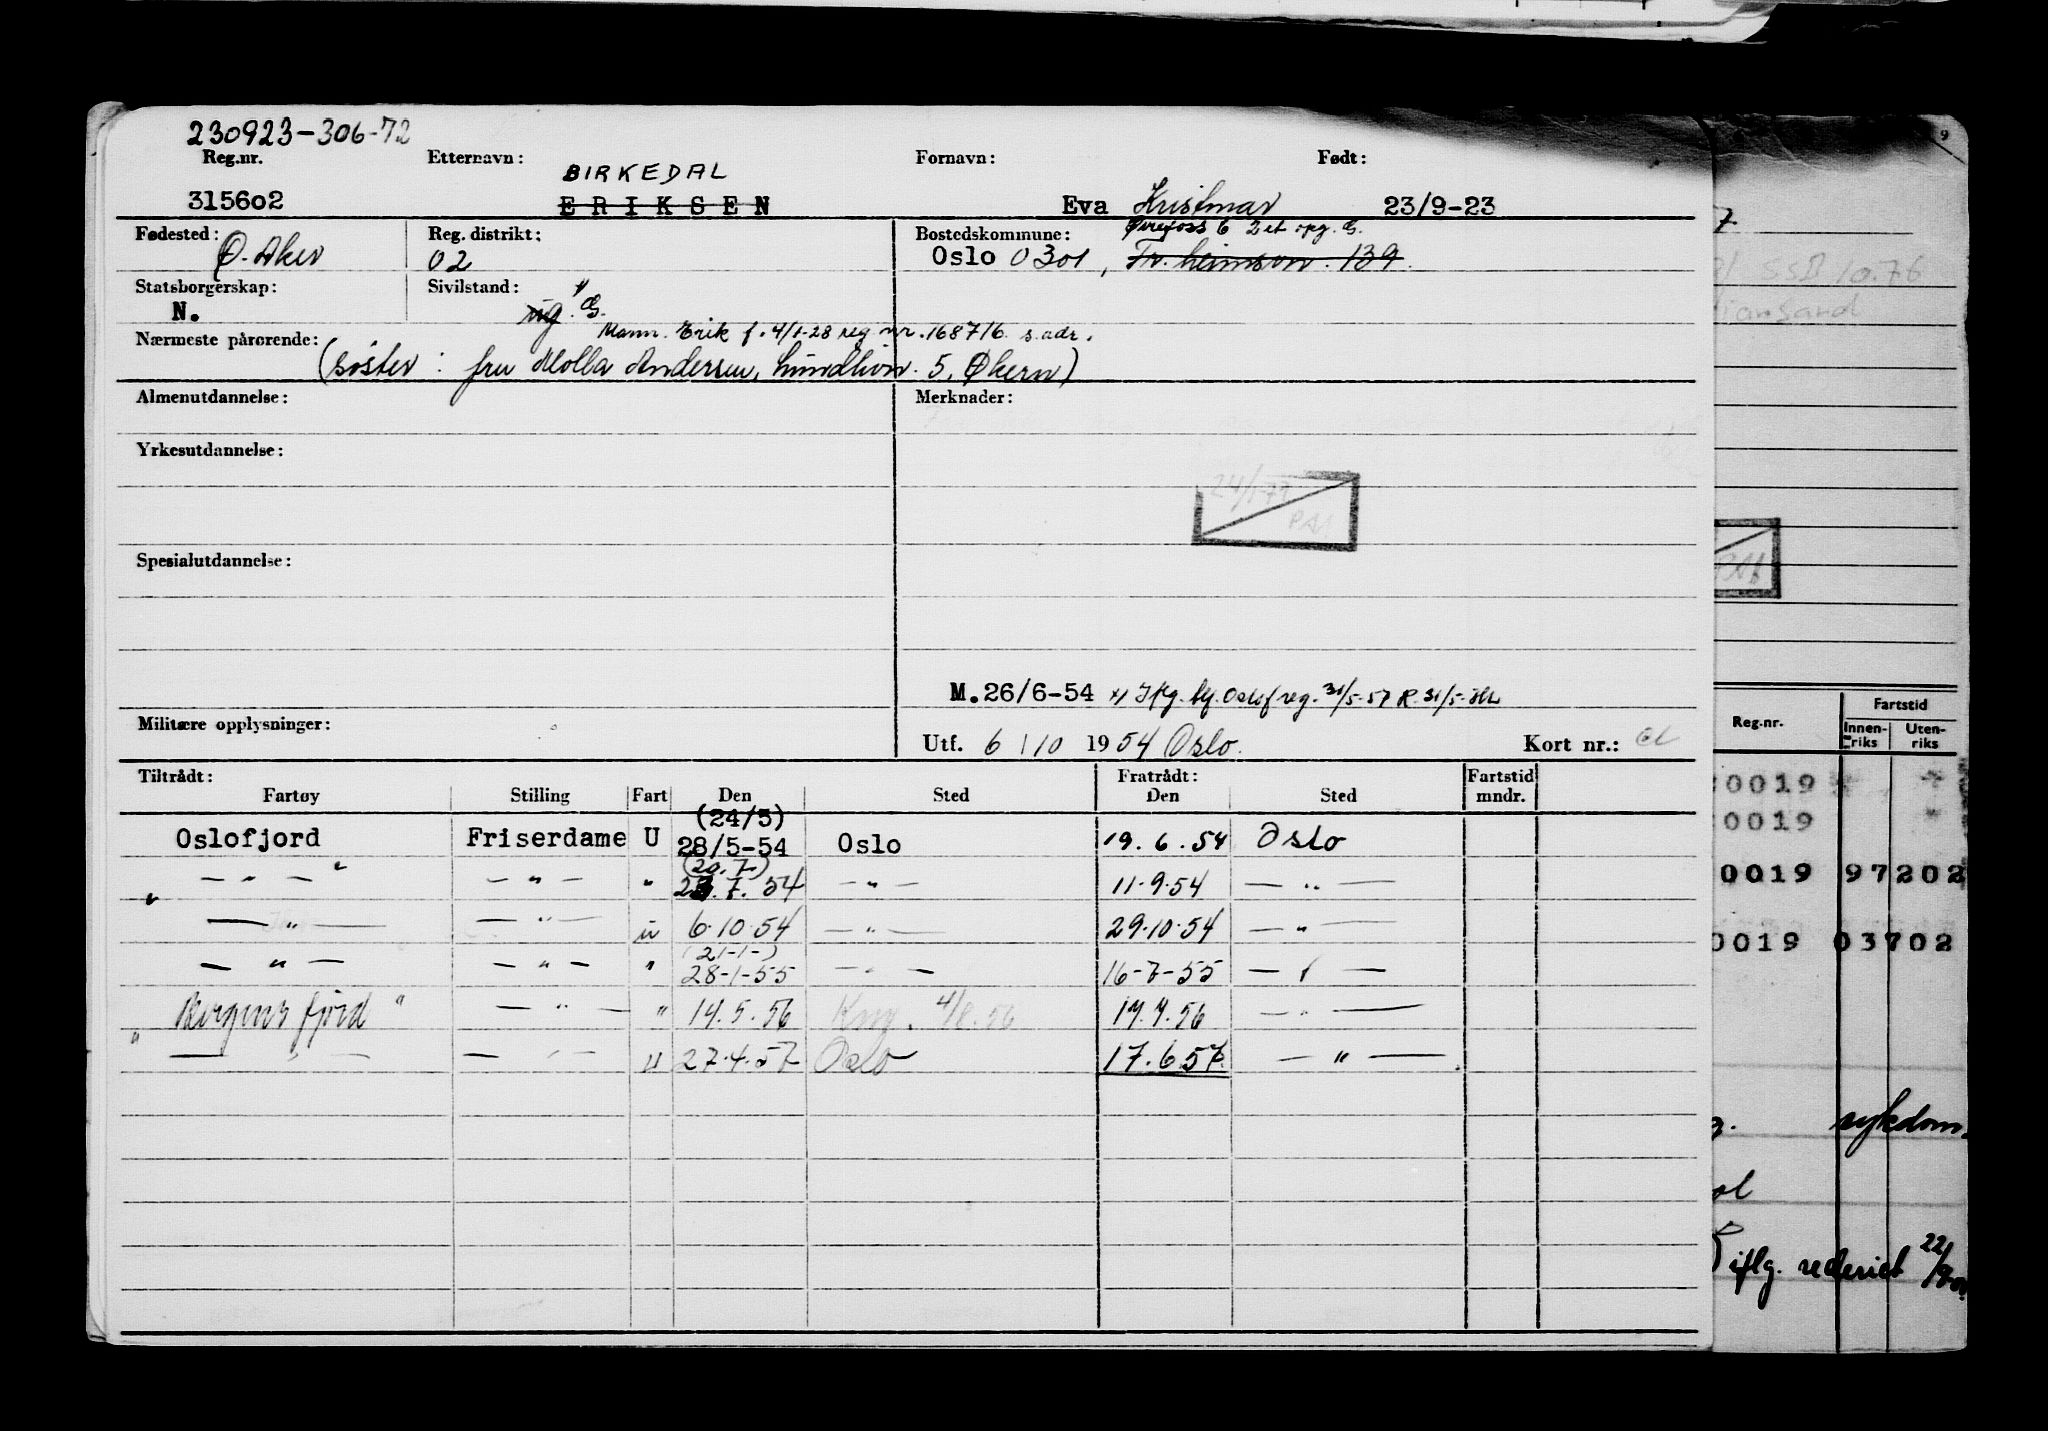 230923-306-72
Reg.nr. Etternavn: Fornavn: Født:
BIRKEDAL
315602 ERIKSEN Eva Kristmar 23/9-23
Fødested: Reg. distrikt: Bostedskommune: 6 2 et opg. G.
Ø. Aker 02 Oslo 0301, Tr. heimsvn. 139.
Statsborgerskap: Sivilstand:
N. ug. G.
Mann. Erik f. 4/1-28 reg nr. 168716 s. adr.
Nærmeste pårørende:
(søster: fru Molla Andersen, 5, Økern)
Almenutdannelse: Merknader:
Yrkesutdannelse:
24/1-77
Spesialutdannelse:
M.26/6-54 x) Oslo reg. 31/5-57 R. 31/5-
Militære opplysninger:
Utf. 6/10 1954 Oslo. Kort nr.:
Tiltrådt: Fratrådt: Fartstid
Fartøy Stilling Fart Den Sted Den Sted mndr.
(24/5)
Oslofjord Friserdame U 28/5-54 Oslo 19.6.54 Oslo
(20.7)
" — " — " — " — " 23.7.54 — " — 11.9.54 — " —
— " — — " — u 6.10.54 — " — 29.10.54 — " —
(21-1-)
— " — — " — " 28-1-55 — " — 16-7-55 — " —
" Bergensfjord " — " — " 14.5.56 4/8.56 17.7.56 — " —
— " — — " — u 27.4.57 Oslo 17.6.57. — " —
9
7
SSB 10.76
Fartstid
Reg.nr. Innen-riks Uten-riks
0019
0019
0019 97202
0019 03702
sykdom.
ol
iflg. rederiet 22/9